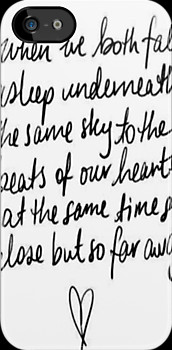 when we both fal
asleep underneath
the same sky to the
beats of our hearts
at the same time so
close but so far awa